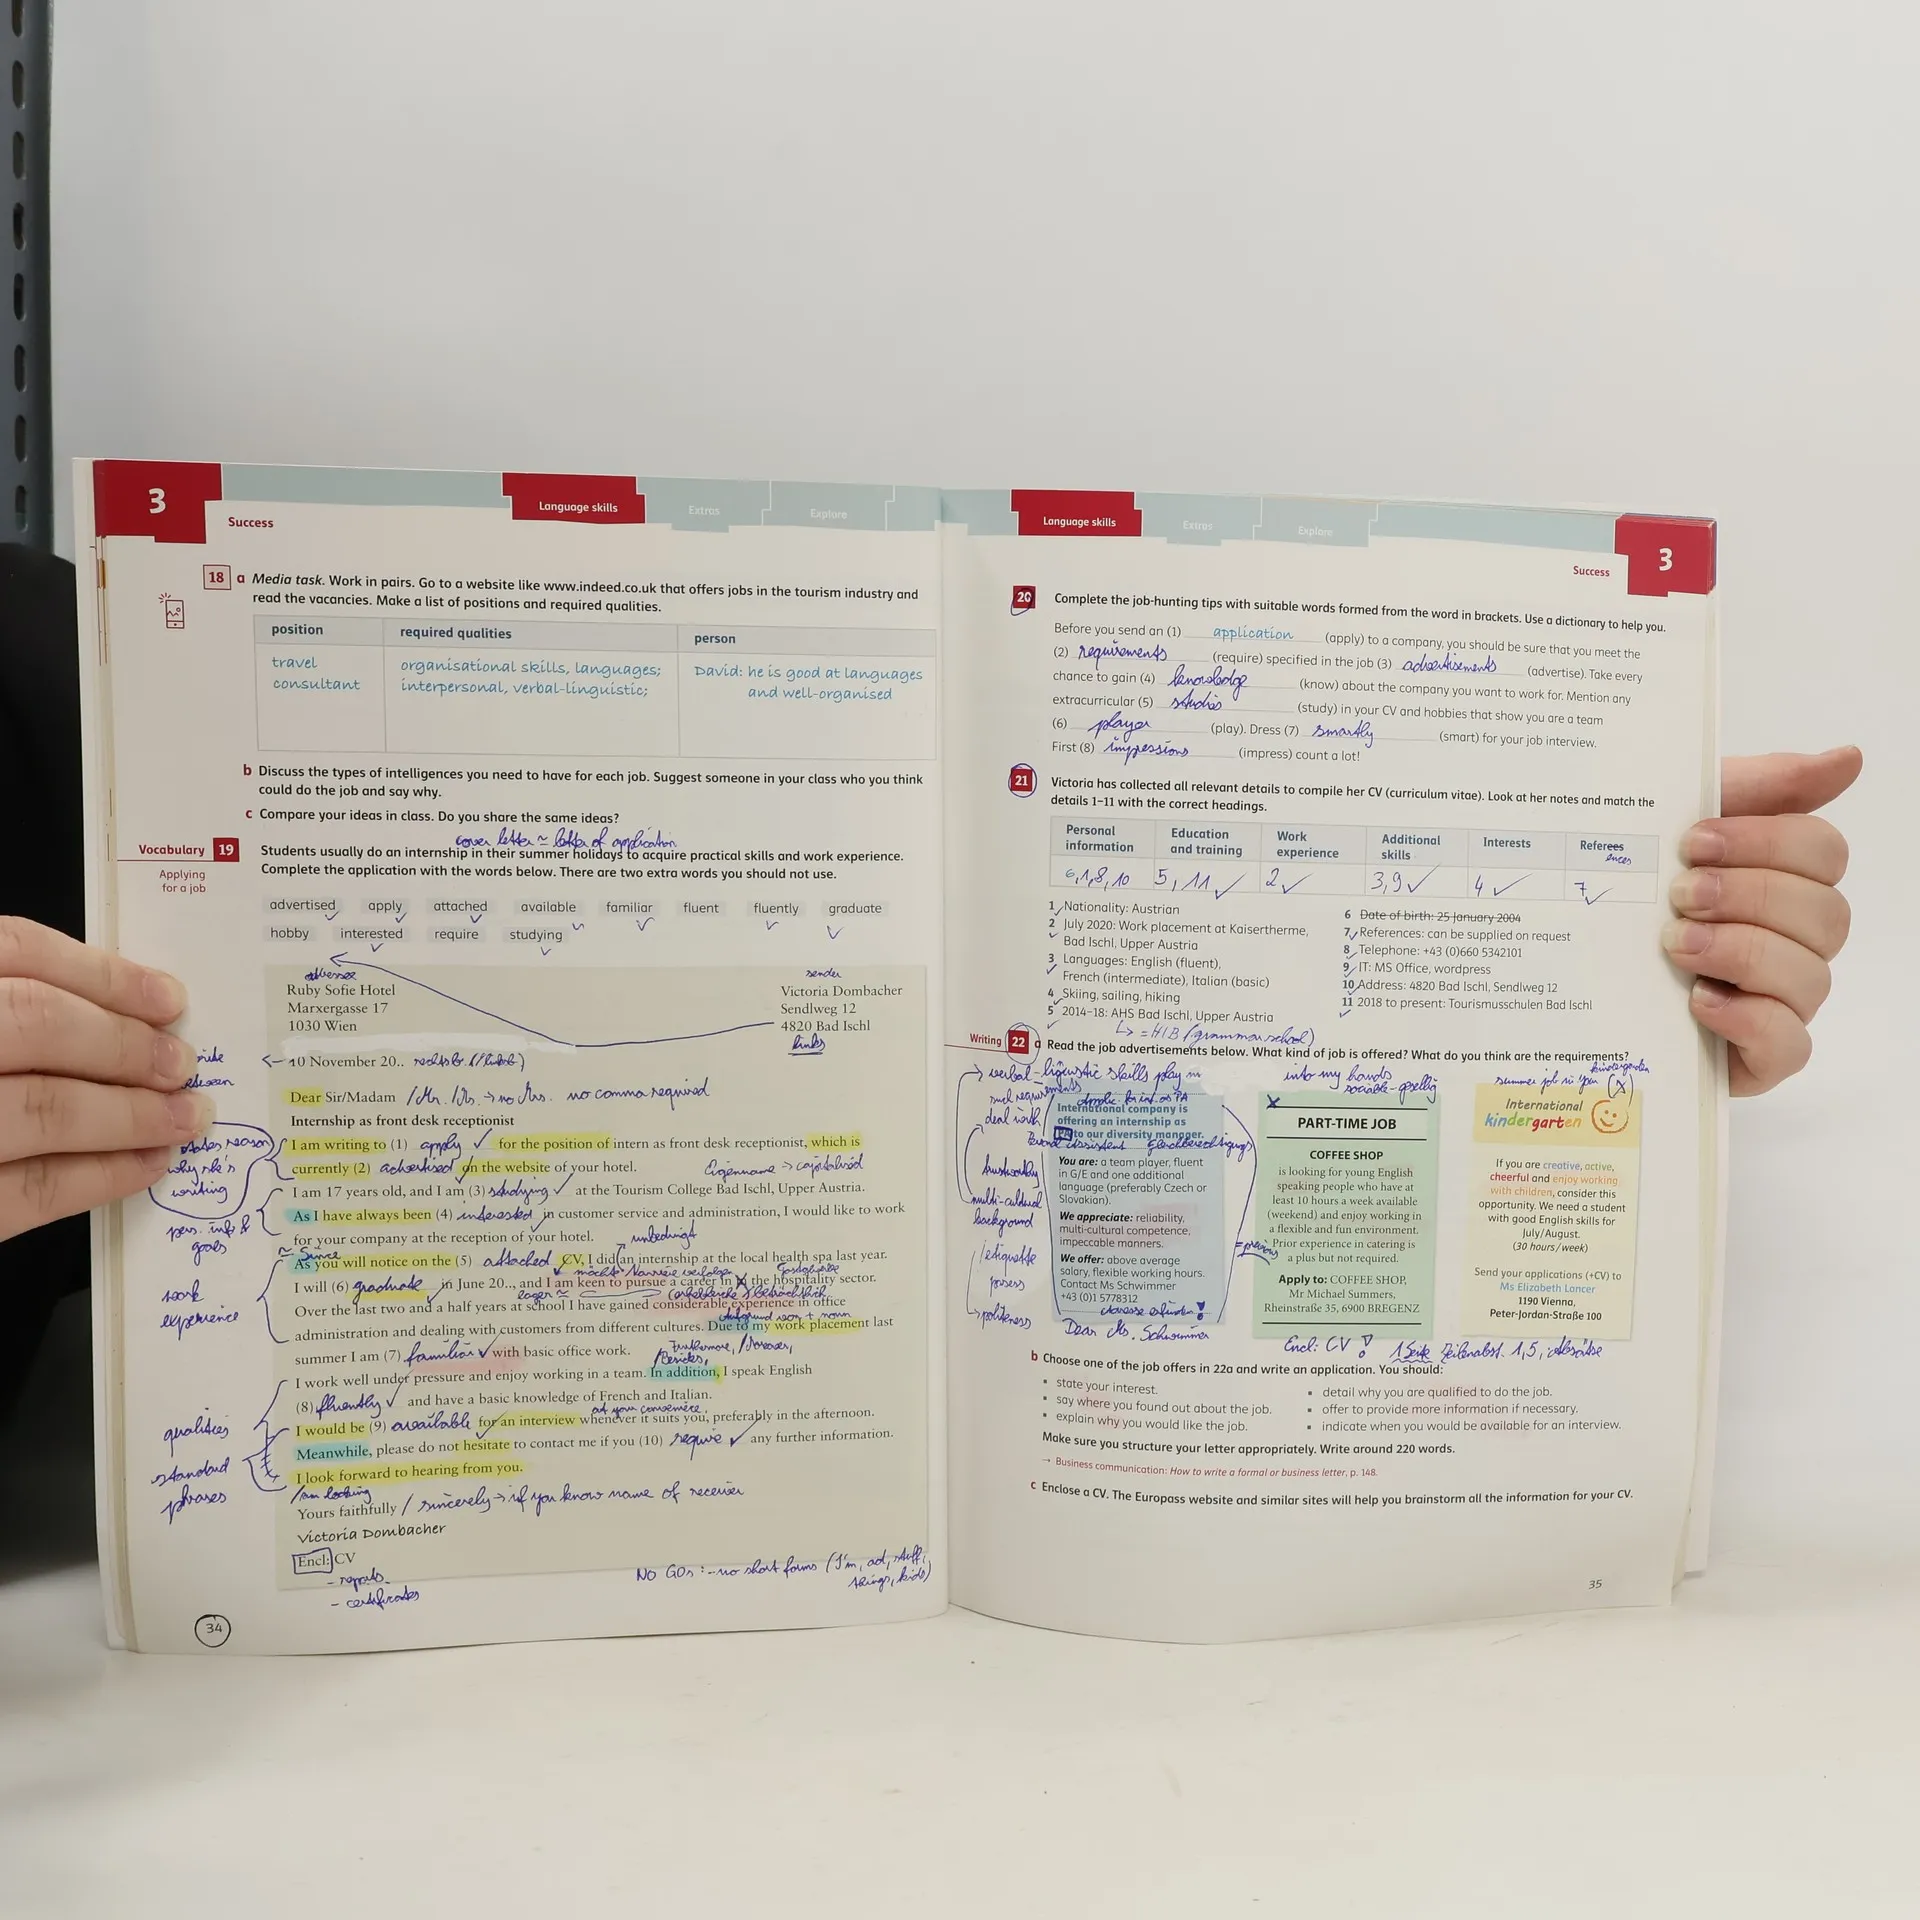 3
Success
Language skills
Extras
Explore
18 a Media task. Work in pairs. Go to a website like www.indeed.co.uk that offers jobs in the tourism industry and
read the vacancies. Make a list of positions and required qualities.
position required qualities person
travel organisational skills, languages; David: he is good at languages
consultant interpersonal, verbal-linguistic; and well-organised
b Discuss the types of intelligences you need to have for each job. Suggest someone in your class who you think
could do the job and say why.
c Compare your ideas in class. Do you share the same ideas?
cover letter ≈ letter of application
Vocabulary 19 Students usually do an internship in their summer holidays to acquire practical skills and work experience.
Applying for a job
Complete the application with the words below. There are two extra words you should not use.
advertised apply attached available familiar fluent fluently graduate
hobby interested require studying
sender
Ruby Sofie Hotel Victoria Dombacher
Marxergasse 17 Sendlweg 12
1030 Wien 4820 Bad Ischl
links
10 November 20..
Dear Sir/Madam /Mr. /Ms. → no Mrs. no comma required
Internship as front desk receptionist
I am writing to (1) apply for the position of intern as front desk receptionist, which is
currently (2) advertised on the website of your hotel.
Eigenname → capitalised
I am 17 years old, and I am (3) studying at the Tourism College Bad Ischl, Upper Austria.
As I have always been (4) interested in customer service and administration, I would like to work
for your company at the reception of your hotel.
unbedingt
≈ Since
As you will notice on the (5) attached CV, I did an internship at the local health spa last year.
I will (6) graduate in June 20.., and I am keen to pursue a career in the hospitality sector.
Over the last two and a half years at school I have gained considerable experience in office
administration and dealing with customers from different cultures. Due to my work placement last
summer I am (7) familiar with basic office work.
Furthermore, / Moreover,
/Besides,
I work well under pressure and enjoy working in a team. In addition, I speak English
(8) fluently and have a basic knowledge of French and Italian.
I would be (9) available for an interview whenever it suits you, preferably in the afternoon.
Meanwhile, please do not hesitate to contact me if you (10) require any further information.
I look forward to hearing from you.
/am looking
Yours faithfully / sincerely → if you know name of receiver
Victoria Dombacher
Encl: CV
- reports
- certificates
NO GOs: - no short forms (I'm, ad, stuff,
things, kids)
states reason
why she's
writing
pers. info &
goals
work
experience
qualities
standard
phrases
34
Language skills
Extras
Explore
Success
3
20 Complete the job-hunting tips with suitable words formed from the word in brackets. Use a dictionary to help you.
Before you send an (1) application (apply) to a company, you should be sure that you meet the
(2) requirements (require) specified in the job (3) advertisements (advertise). Take every
chance to gain (4) knowledge (know) about the company you want to work for. Mention any
extracurricular (5) studies (study) in your CV and hobbies that show you are a team
(6) player (play). Dress (7) smartly (smart) for your job interview.
First (8) impressions (impress) count a lot!
21 Victoria has collected all relevant details to compile her CV (curriculum vitae). Look at her notes and match the
details 1–11 with the correct headings.
Personal information Education and training Work experience Additional skills Interests Referees
ences
6,1,8,10 5, 11 2 3,9 4 7
1 Nationality: Austrian
2 July 2020: Work placement at Kaisertherme,
Bad Ischl, Upper Austria
3 Languages: English (fluent),
French (intermediate), Italian (basic)
4 Skiing, sailing, hiking
5 2014–18: AHS Bad Ischl, Upper Austria
6 Date of birth: 25 January 2004
7 References: can be supplied on request
8 Telephone: +43 (0)660 5342101
9 IT: MS Office, wordpress
10 Address: 4820 Bad Ischl, Sendlweg 12
11 2018 to present: Tourismusschulen Bad Ischl
Writing 22 a Read the job advertisements below. What kind of job is offered? What do you think are the requirements?
→ verbal-linguistic skills play
into my hands
sociable - gesellig
summer job in
kindergarten
deal with
multi-cultural
background
→ politeness
International company is
offering an internship as
PA to our diversity manager.
Gleichberechtigung
You are: a team player, fluent
in G/E and one additional
language (preferably Czech or
Slovakian).
We appreciate: reliability,
multi-cultural competence,
impeccable manners.
We offer: above average
salary, flexible working hours.
Contact Ms Schwimmer
+43 (0)1 5778312
Adresse erfinden!
Dear Ms. Schwimmer
= previous
PART-TIME JOB
COFFEE SHOP
is looking for young English
speaking people who have at
least 10 hours a week available
(weekend) and enjoy working in
a flexible and fun environment.
Prior experience in catering is
a plus but not required.
Apply to: COFFEE SHOP,
Mr Michael Summers,
Rheinstraße 35, 6900 BREGENZ
International
kindergarten
If you are creative, active,
cheerful and enjoy working
with children, consider this
opportunity. We need a student
with good English skills for
July/August.
(30 hours/week)
Send your applications (+CV) to
Ms Elizabeth Lancer
1190 Vienna,
Peter-Jordan-Straße 100
Encl: CV ! 1 Seite Zeilenabst. 1,5, Absätze
b Choose one of the job offers in 22a and write an application. You should:
▪ state your interest.
▪ say where you found out about the job.
▪ explain why you would like the job.
▪ detail why you are qualified to do the job.
▪ offer to provide more information if necessary.
▪ indicate when you would be available for an interview.
Make sure you structure your letter appropriately. Write around 220 words.
→ Business communication: How to write a formal or business letter, p. 148.
c Enclose a CV. The Europass website and similar sites will help you brainstorm all the information for your CV.
35